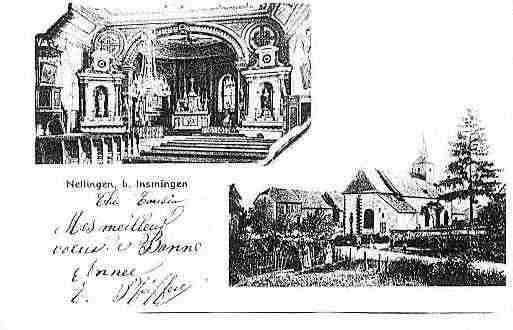 Nellingen, b. Insmingen
Cousin
Mes meilleurs
voeux & Bonne
Année